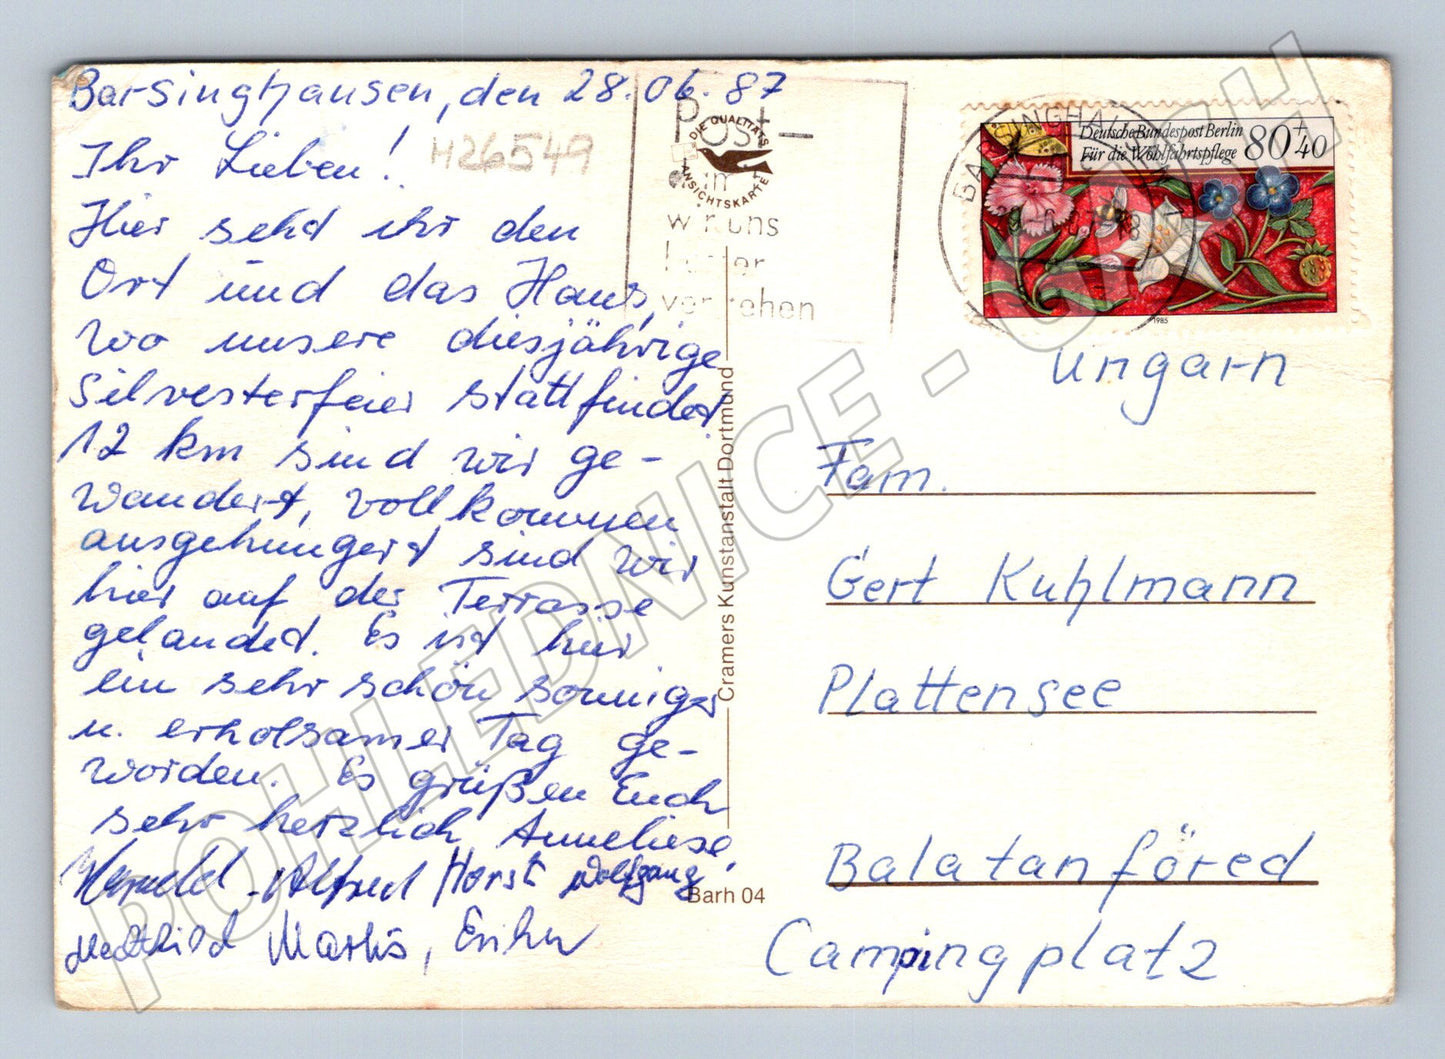 Barsinghausen, den 28.06.87
Ihr Lieben!
H26549
Hier seht ihr den
Ort und das Haus,
wo unsere diesjährige
Silvesterfeier stattfindet
12 km sind wir ge-
wandert, vollkommen
ausgehungert sind wir
hier auf der Terrasse
gelandet. Es ist hier
ein sehr schön sonniger
u. erholsamer Tag ge-
worden. Es grüßen Euch
sehr herzlich Anneliese,
Alfred Horst Wolfgang
Mechthild
Post-
DIE QUALITÄTS
ANSICHTSKARTE
BARSINGHAUSEN
Deutsche Bundespost Berlin
Für die Wohlfahrtspflege
80+40
1985
Ungarn
Fam.
Gert Kuhlmann
Plattensee
Balatanföred
Campingplatz
Cramers Kunstanstalt Dortmund
Barh 04
POHLEDNICE - CASH